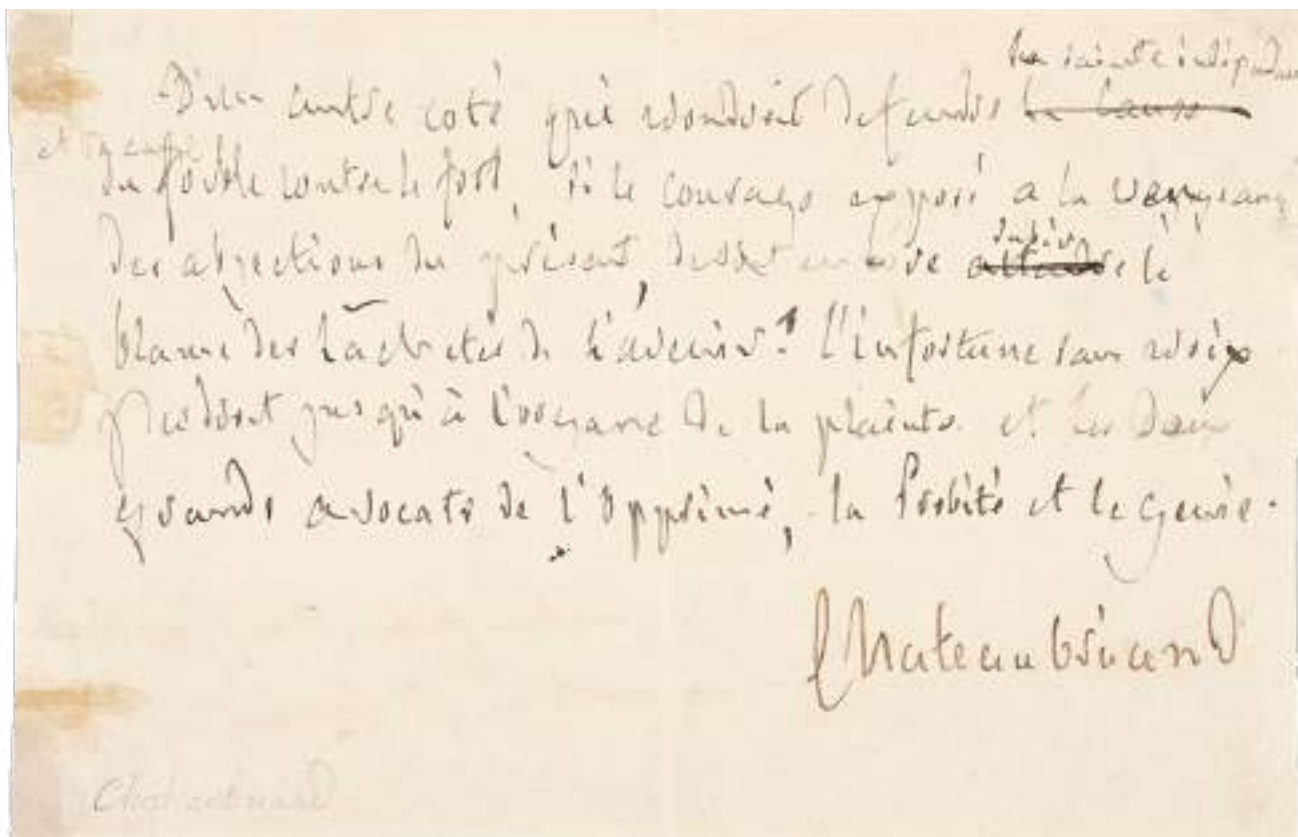 la sainte indépendance
D'un autre coté qui voudroit defendre la cause
et la cause
du foible contre le fort, si le courage exposé a la vengeance
des abjections du présent, devoit encore attendre le
subir
blame des lachetés de l'avenir? l'infortune sans voix
perdroit jusqu'à l'organe de la plainte et les deux
grands avocats de l'Opprimé, la Probité et le Genie.
Chateaubriand
Chateaubriand